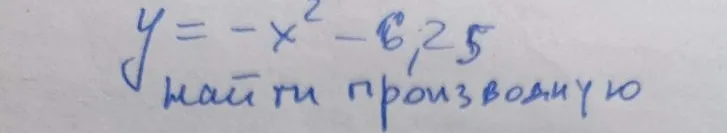 y = -x² - 6,25
найти производную